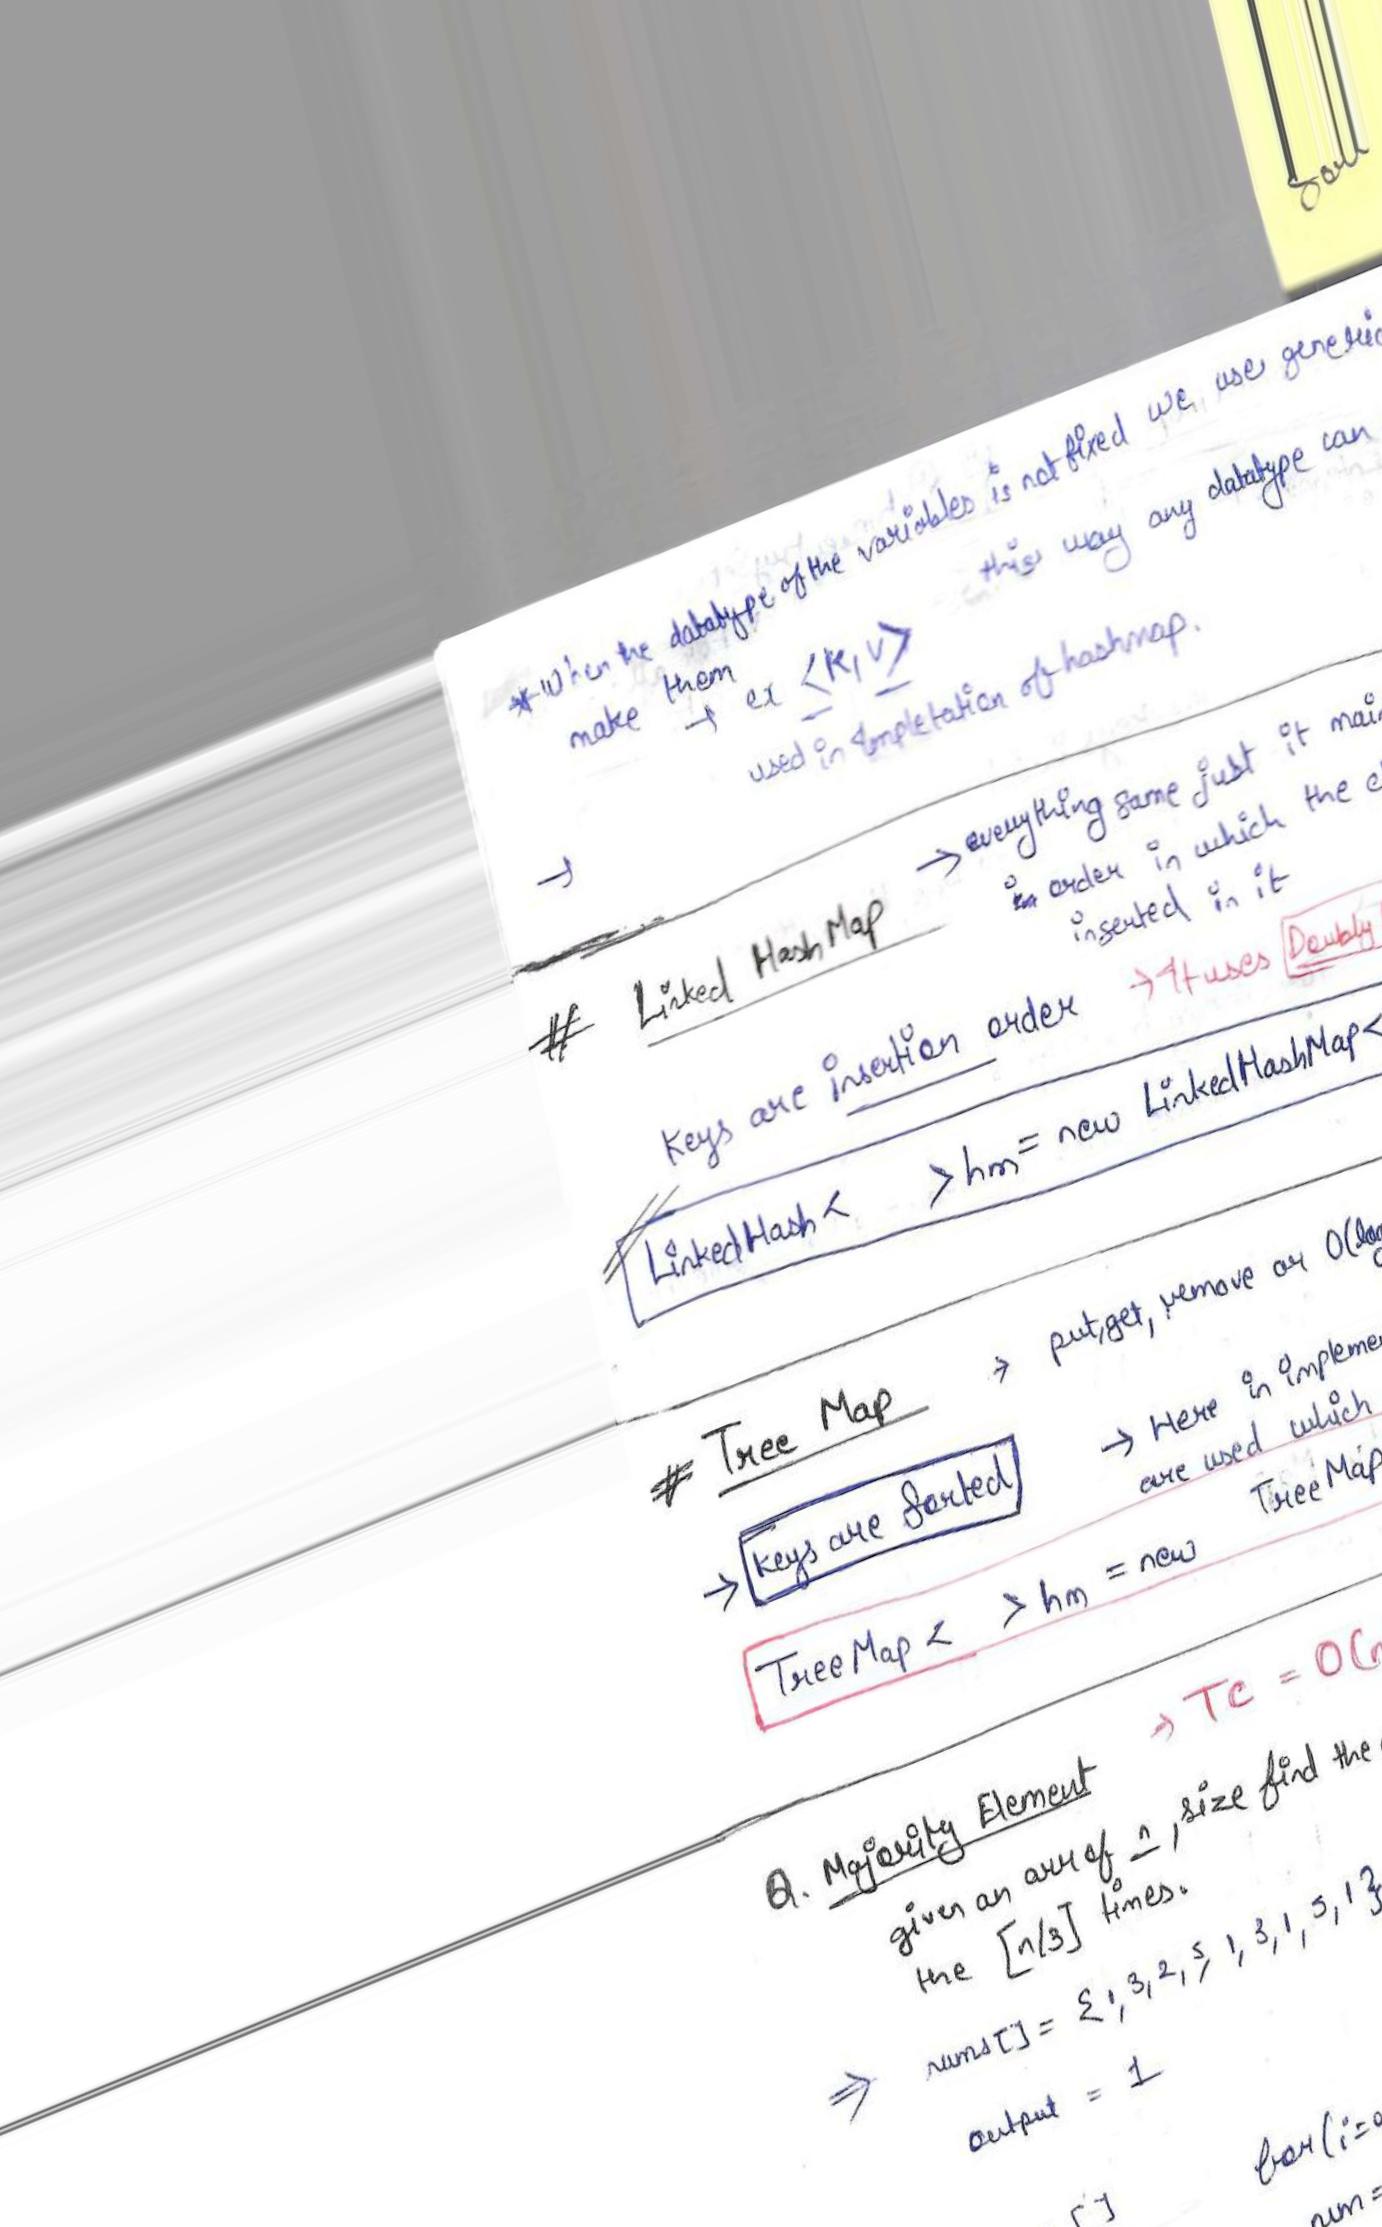 * When the datatype of the variables is not fixed we use generic
make them this way any datatype can
→ ex <K, V>
used in Impletation of hashmap.
→
# Linked HashMap → everything same just it main
in order in which the e
inserted in it
Keys are insertion order → It uses Doubly
LinkedHash < > hm = new LinkedHashMap<
# Tree Map → put, get, remove or O(log
→ Keys are Sorted → Here in impleme
are used which
TreeMap < > hm = new TreeMap
Q. Majority Element → TC = O(n
given an arr of n, size find the
the [n/3] times.
⇒ nums[] = {1, 3, 2, 5, 1, 3, 1, 5, 1}
output = 1
for(i=0
[]
num =